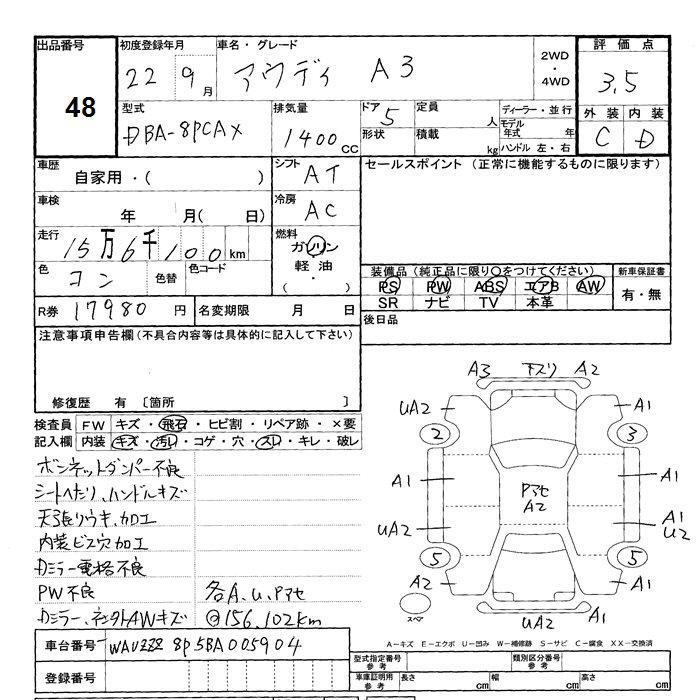 出品番号
48
初度登録年月
22 9月
車名・グレード
アウディ A3
2WD
・
4WD
評価点
3.5
外装 内装
C D
型式
DBA-8PCAX
排気量
1400cc
ドア 5
形状
定員 人
積載 kg
ディーラー・並行
モデル年式 年
ハンドル 左・右
車歴
自家用・( )
シフト
AT
セールスポイント (正常に機能するものに限ります)
車検
年 月( 日)
冷房
AC
走行
15万6千100km
燃料
ガソリン
軽油
( ・ )
色
コン
色替
色コード
装備品 (純正品に限り○をつけてください)
新車保証書
PS PW ABS エアB AW
有・無
SR ナビ TV 本革
R券 17980円
名変期限 月 日
後日品
注意事項申告欄 (不具合内容等は具体的に記入して下さい)
修復歴 有 〔箇所 〕
検査員記入欄
FW キズ・飛石・ヒビ割・リペア跡・×要
内装 キズ・汚レ・コゲ・穴・スレ・キレ・破レ
ボンネットダンパー不良
シートヘたり、ハンドルキズ
天張リウキ、加工
内装ビス穴加工
Dミラー電格不良
PW不良
各A、U、Pアセ
@156,102km
A3 下スリ A2
UA2 A1
2 3
A1 A1
Pアセ
A2
UA2 A1
U2
5 5
A2 A1
スペア
UA2
A－キズ E－エクボ U－凹み W－補修跡 S－サビ C－腐食 XX－交換済
車台番号 WAUZZZ8P5BA005904
登録番号
型式指定番号
参考
類別区分番号
参考
車庫証明用
参考
長さ cm 幅 cm 高さ cm